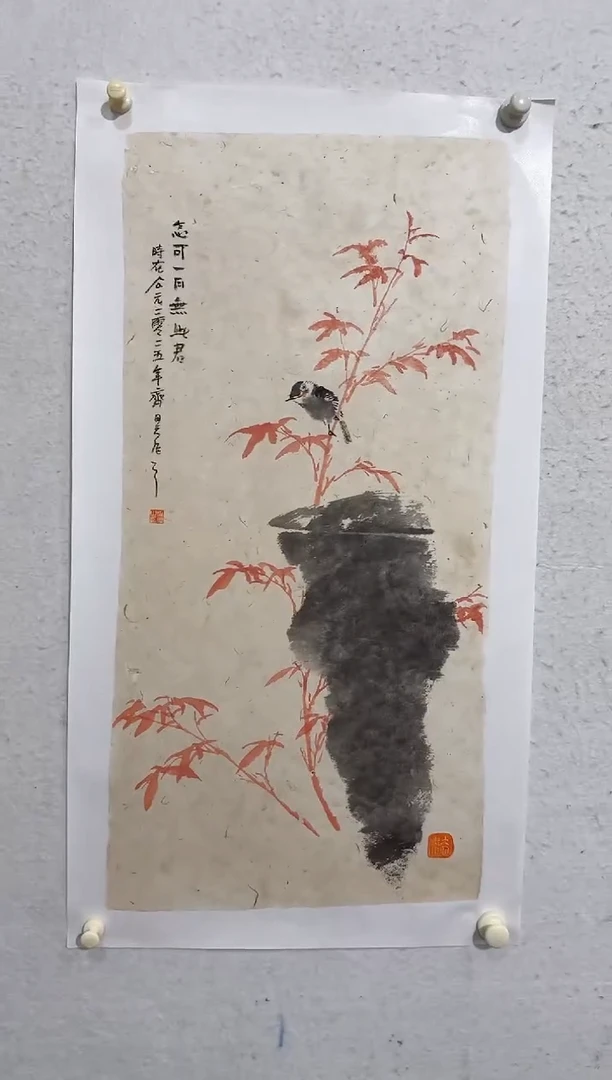 怎可一日無此君
時在公元二零二五年齊